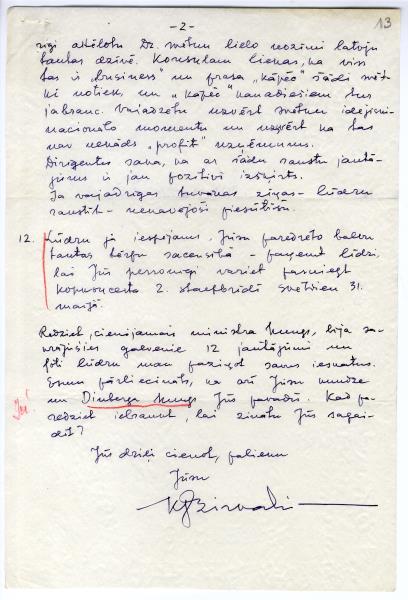 -2-
13
zīgi attēlotu Dz. svētku lielo nozīmi latvju
tautas dzīvē. Konsulam liekas, ka viss
tas ir „business" un prasa „kāpēc" šādi svēt-
ki notiek, un „kāpēc" kanadiešiem tur
jābrauc. Vajadzētu uzsvērt svētku idejisni-
nacionālo momentu un uzsvērt ka tas
nav nekāds „profit" uzņēmums.
Dirigentus sava, ka ar šādu rakstu jautā-
jums ir jau pozitīvi izšķirts.
Ja vajadzīgas tuvākas ziņas - lūdzu
rakstīt - nekavējoši piesūtīšu.
12. Lūdzu ja iespējams, Jūsu paredzēto balvu
tautas tērpu sacensībā - paņemt līdzi,
lai Jūs personīgi variet pasniegt
kopkoncertā 2. starpbrīdī svētdien 31.
maijā.
Redziet, cienījamais ministra kungs, bija sa-
krājušies galvenie 12 jautājumi un
ļoti lūdzu man paziņot savus ieskatus.
Esmu pārliecināts, ka arī Jūsu kundze
un Dinberga kungs Jūs pavadīs. Kad pa-
redziet iebraukt, lai zinātu Jūs sagai-
dīt?
Jūs dziļi cienot, palieku
Jūsu